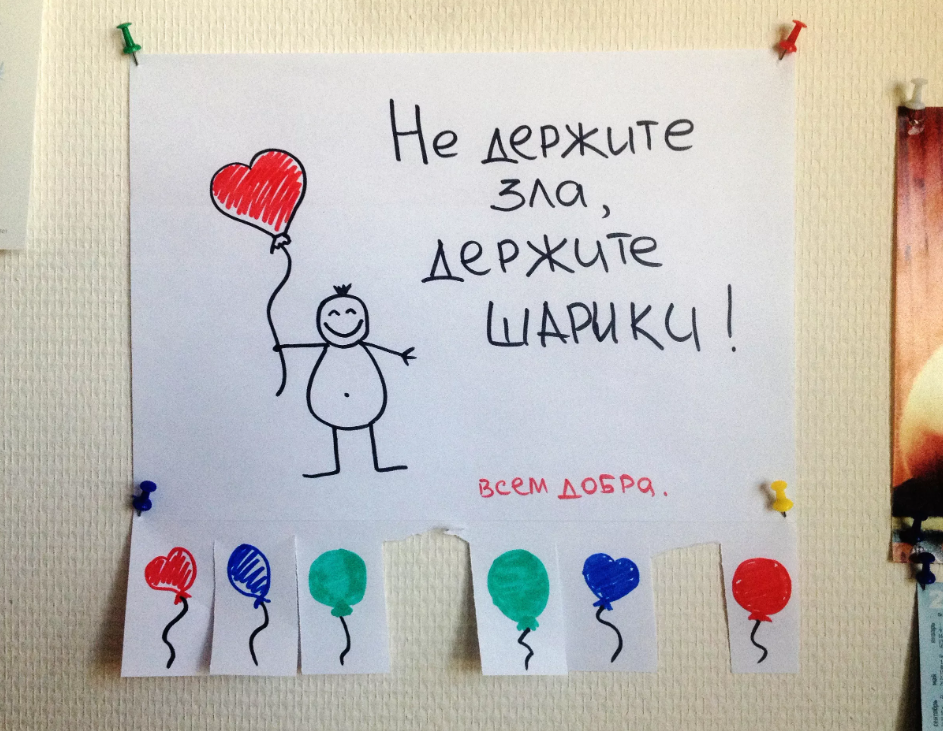 Не держите
зла,
держите
ШАРИКИ!
всем добра.
май